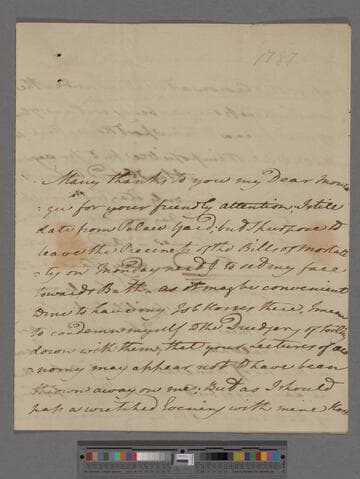 1787
- Many thanks to you my Dear Monta
- gu for your friendly attention. I still
date from Palace Yard, but I purpose to
leave the Precincts of the Bills of Mortali
- ty on Monday next & to set my face
towards Bath. as it may be convenient
to me to have my Job Horses there, I mean
to condemn myself to the Drudgery of trotting
down with them, that your Lectures of Oeco
- nomy may appear not to have been
thrown away on me. But as I should
pass a wretched Evening with mine Host